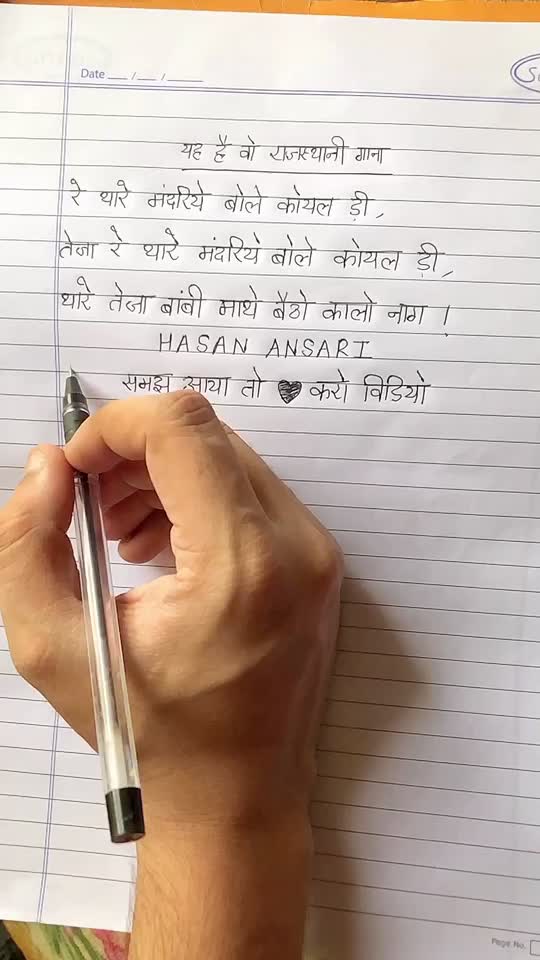 Date __/__/____
यह है वो राजस्थानी गाना
रे थारे मंदरिये बोले कोयल ड़ी,
तेजा रे थारे मंदरिये बोले कोयल ड़ी,
थारे तेजा बांबी माथे बैठो कालो नाग !
HASAN ANSARI
समझ आया तो 🖤 करो विडियो
Page No.